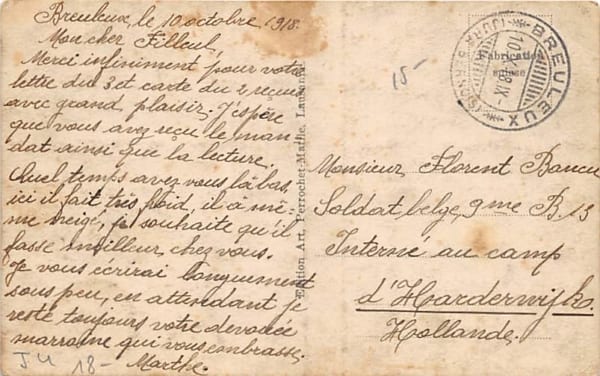 Breuleux, le 10 octobre 1918.
Mon cher Filleul,
Merci infiniment pour votre
lettre du 3 et carte du 2 reçues
avec grand plaisir. J'espère
que vous avez reçu le man-
dat ainsi que la lecture.
Quel temps avez vous là bas,
ici il fait très froid, il a mê-
me neigé, je souhaite qu'il
fasse meilleur chez vous.
Je vous écrirai longuement
sous peu, en attendant je
reste toujours votre dévouée
marraine qui vous embrasse.
Marthe.
18-
Edition Art. Perrochet-Matile, Lausanne
Fabrication
suisse
BREULEUX
(JURA BERNOIS)
10.X.18.IX-
15-
Monsieur Florent
Soldat belge, 9me B. 13
Interné au camp
d'Harderwijk.
Hollande.